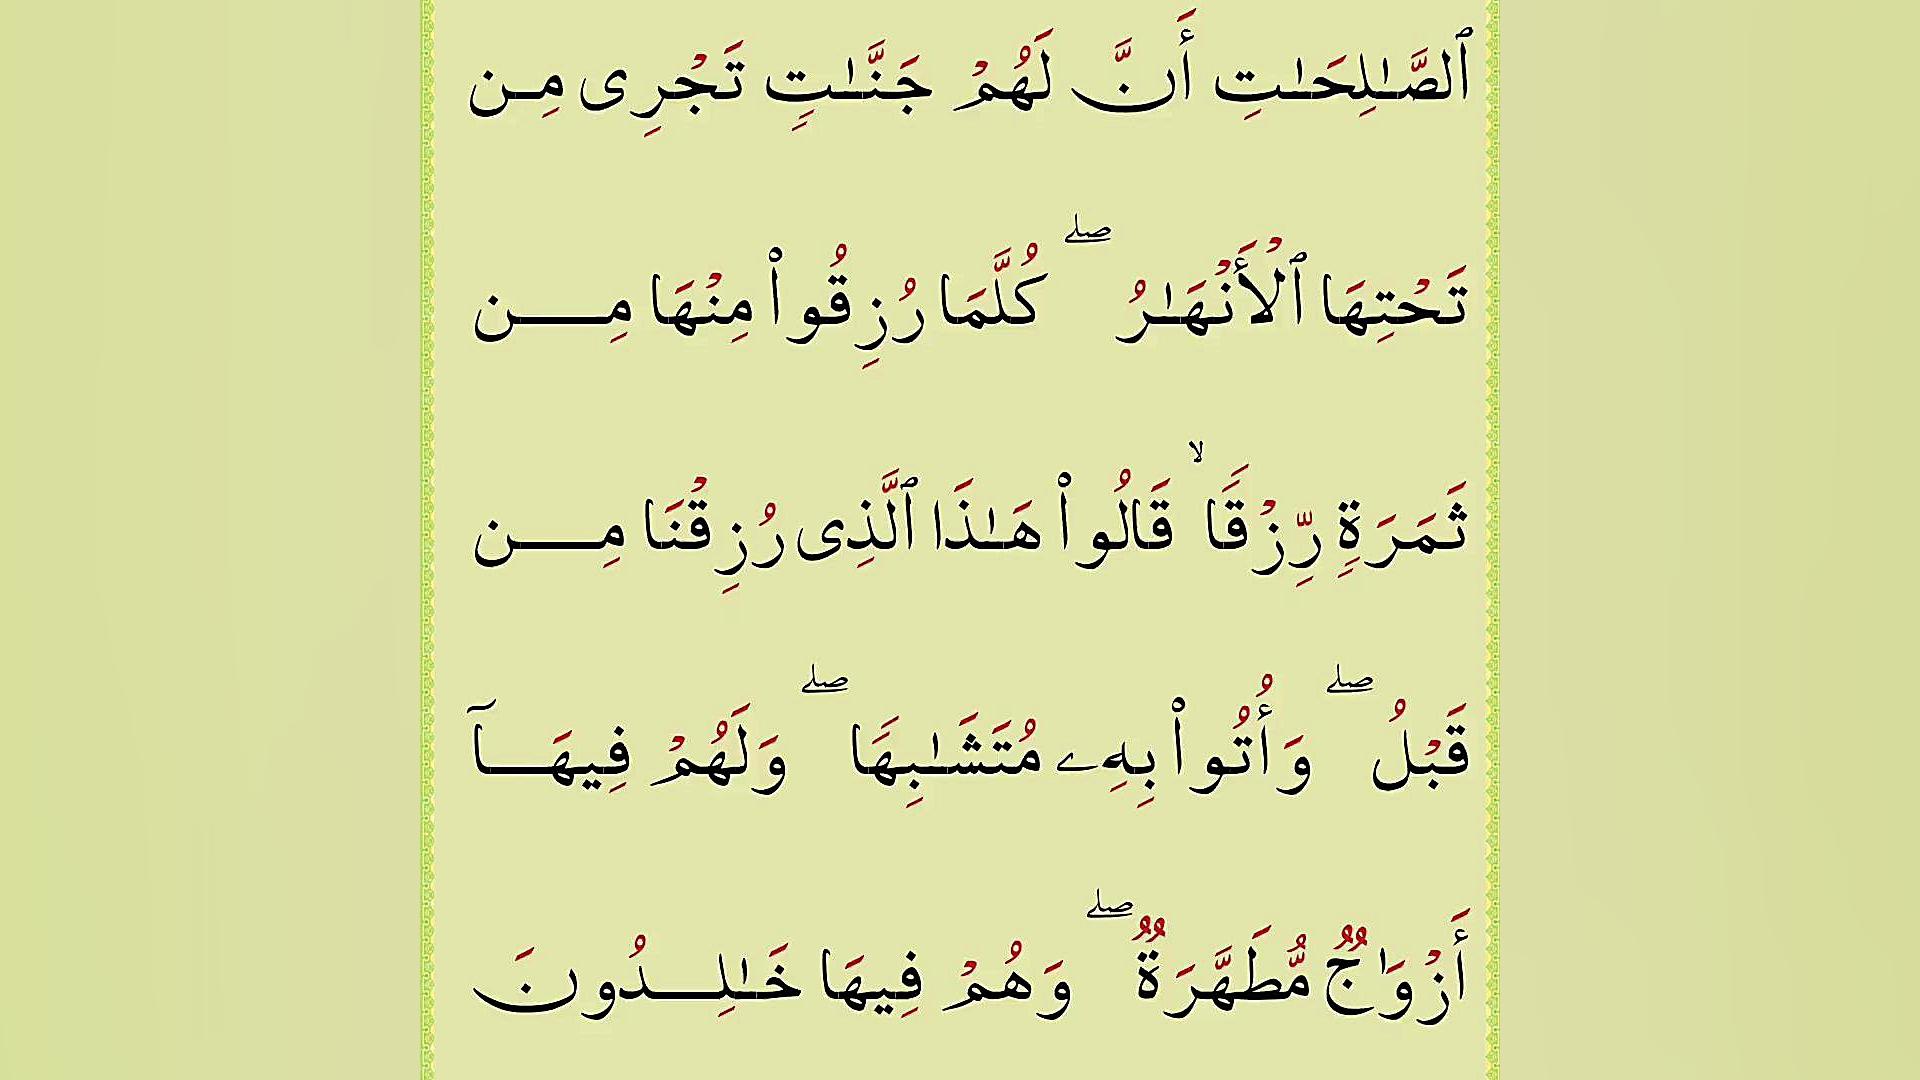 ٱلصَّـٰلِحَـٰتِ أَنَّ لَهُمْ جَنَّـٰتٍ تَجْرِى مِن
تَحْتِهَا ٱلْأَنْهَـٰرُ ۖ كُلَّمَا رُزِقُوا۟ مِنْهَا مِن
ثَمَرَةٍ رِّزْقًا ۙ قَالُوا۟ هَـٰذَا ٱلَّذِى رُزِقْنَا مِن
قَبْلُ ۖ وَأُتُوا۟ بِهِۦ مُتَشَـٰبِهًا ۖ وَلَهُمْ فِيهَآ
أَزْوَٰجٌ مُّطَهَّرَةٌ ۖ وَهُمْ فِيهَا خَـٰلِدُونَ